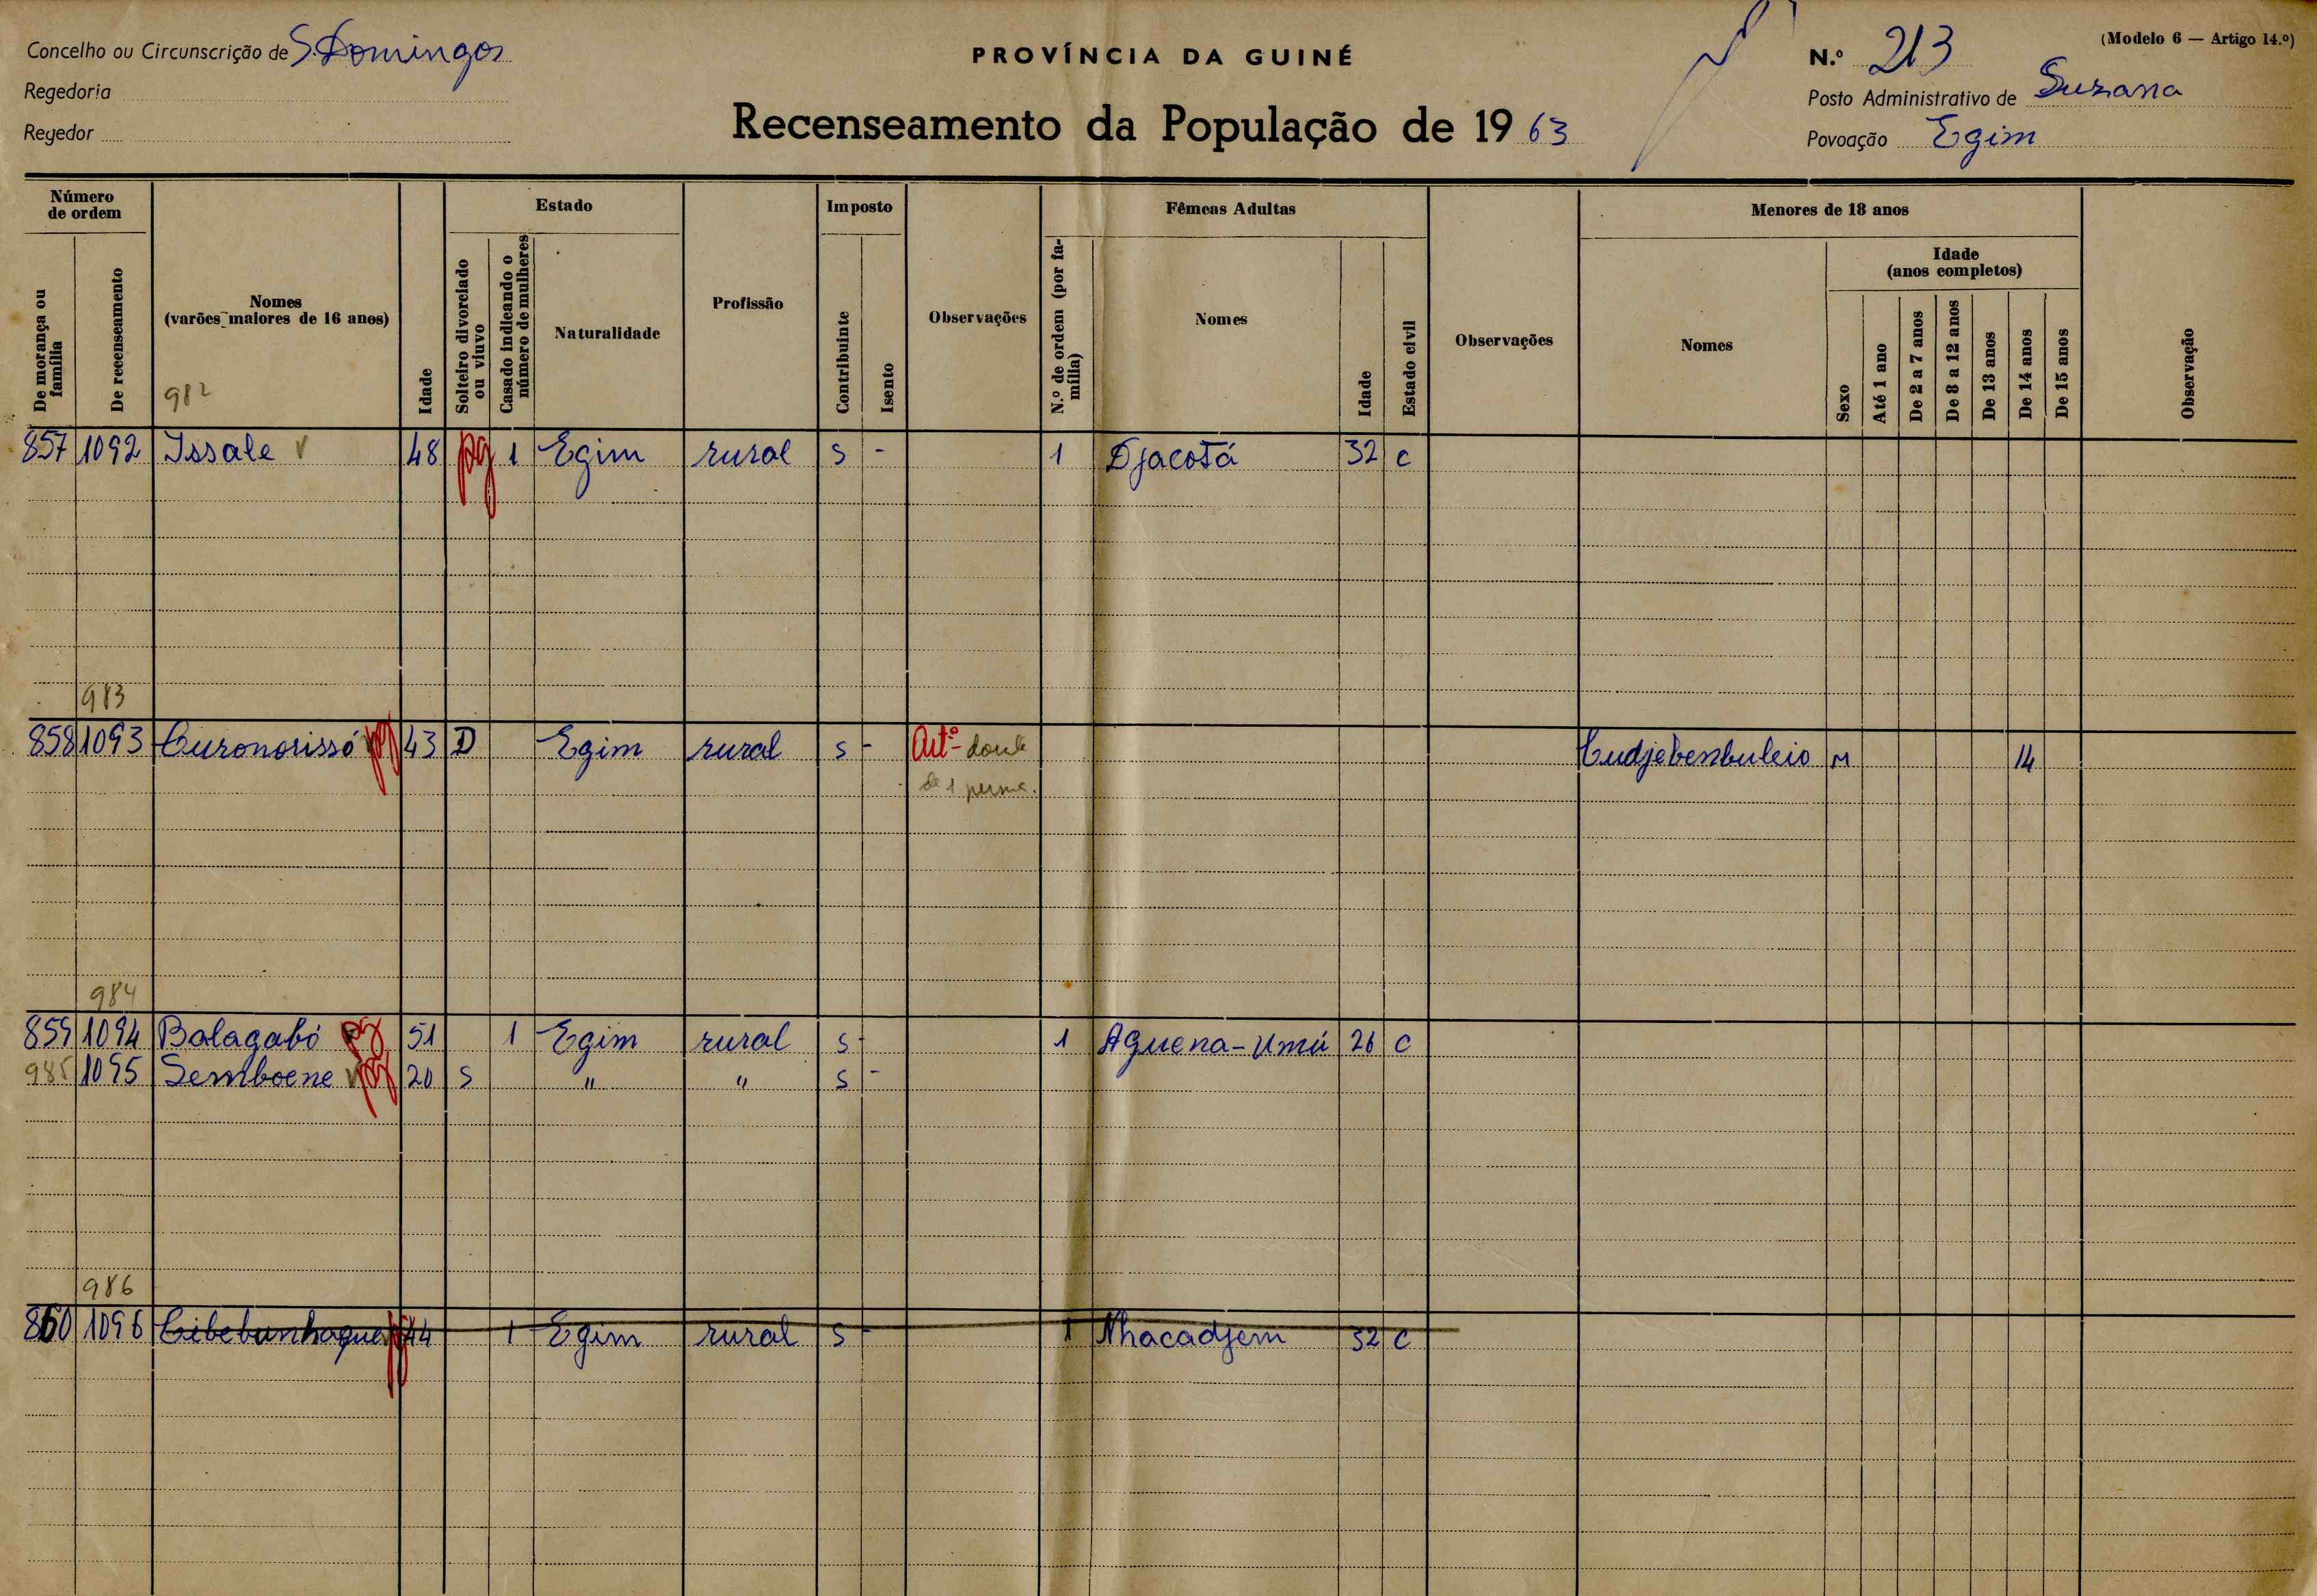 Concelho ou Circunscrição de S. Domingos
PROVÍNCIA DA GUINÉ
N.º 213
(Modelo 6 — Artigo 14.º)
Regedoria
Posto Administrativo de Suzana
Regedor
Recenseamento da População de 1963
Povoação Egim
Número de ordem
Estado
Imposto
Fêmeas Adultas
Menores de 18 anos
De morança ou família
De recenseamento
Nomes (varões maiores de 16 anos)
Idade
Solteiro divorciado ou viuvo
Casado indicando o número de mulheres
Naturalidade
Profissão
Contribuinte
Isento
Observações
N.º de ordem (por família)
Nomes
Idade
Estado civil
Observações
Nomes
Sexo
Idade (anos completos)
Até 1 ano
De 2 a 7 anos
De 8 a 12 anos
De 13 anos
De 14 anos
De 15 anos
Observação
982
857 1092 Issale 48 pg 1 Egim rural s - 1 Djacotá 32 c
983
858 1093 Curonorissó pg 43 D Egim rural s - Artº- Cudjebenbuleio M 14
de 1 perna.
984
859 1094 Balagabó pg 51 1 Egim rural s - 1 Aguena-Umú 26 c
985 1095 Semboene pg 20 s " " s -
986
860 1096 Cibebunhaque pg 44 1 Egim rural s - 1 Nhacadjem 32 c